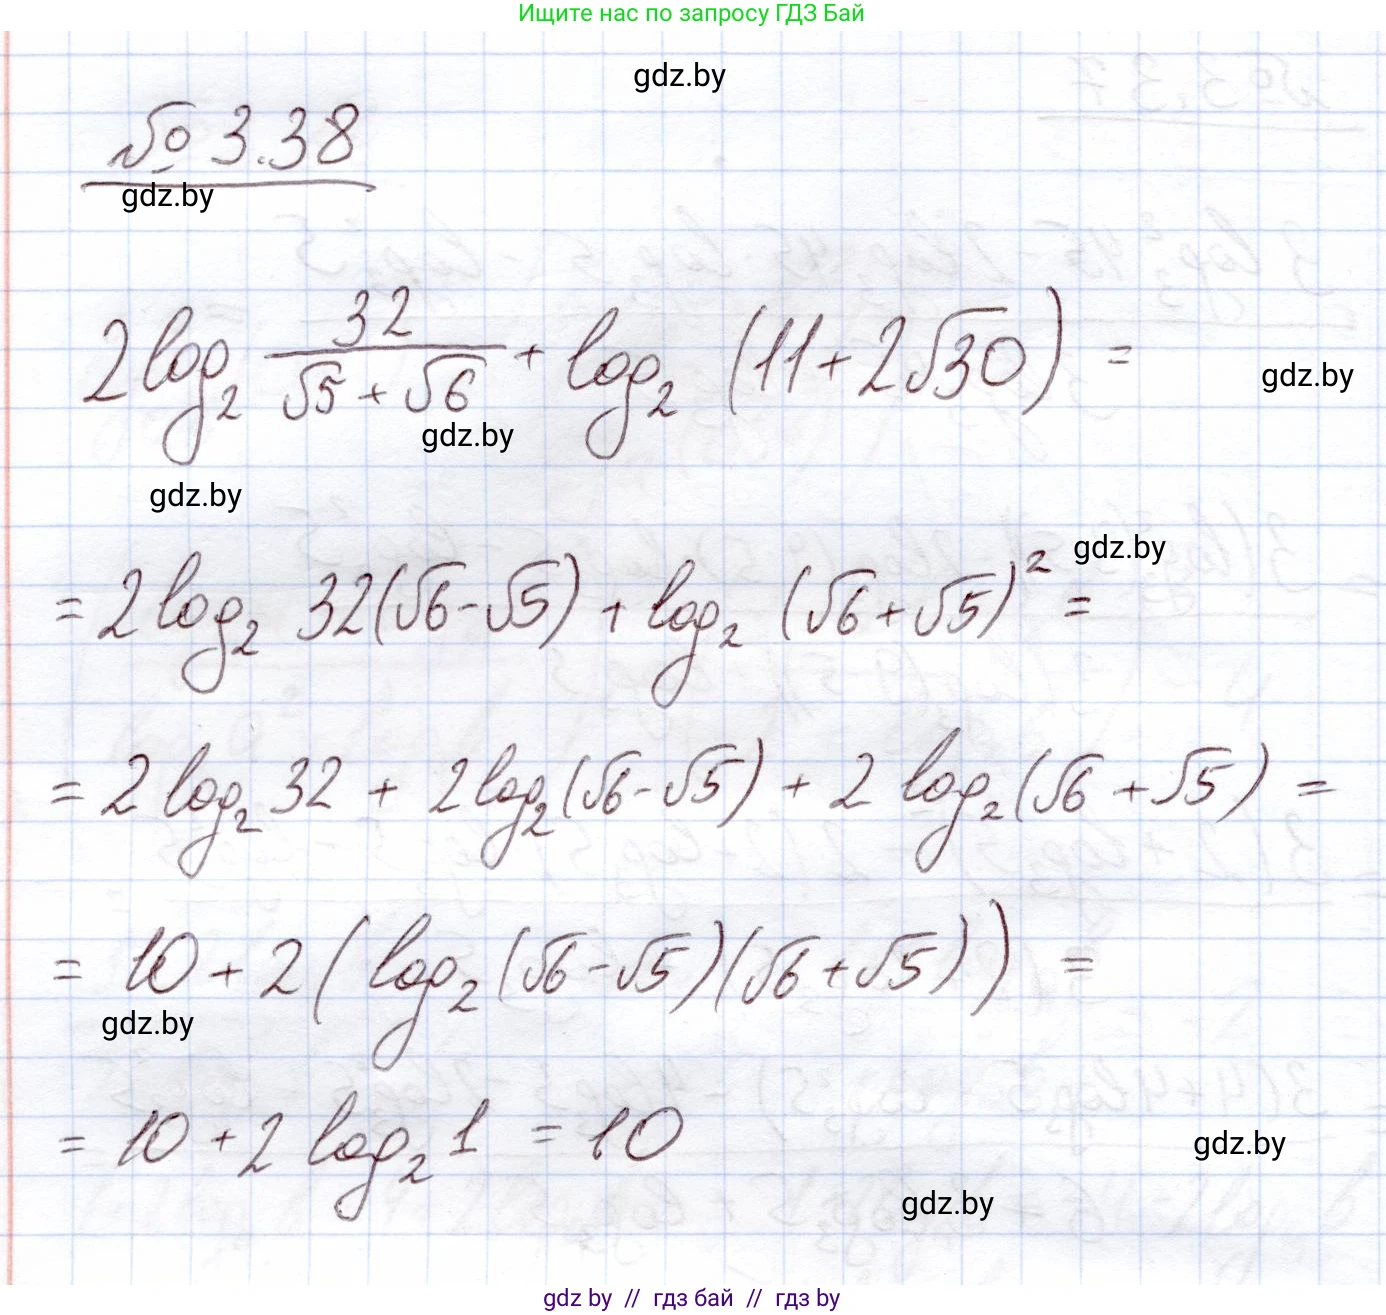 Ищите нас по запросу ГДЗ Бай
gdz.by
№ 3.38
gdz.by
2 log₂ 32/(√5 + √6) + log₂ (11 + 2√30) =
gdz.by
gdz.by
gdz.by
gdz.by
= 2 log₂ 32(√6 - √5) + log₂ (√6 + √5)² =
= 2 log₂ 32 + 2 log₂ (√6 - √5) + 2 log₂ (√6 + √5) =
= 10 + 2 ( log₂ (√6 - √5)(√6 + √5)) =
gdz.by
= 10 + 2 log₂ 1 = 10
gdz.by
gdz.by
gdz by // гдз бай // гдз by